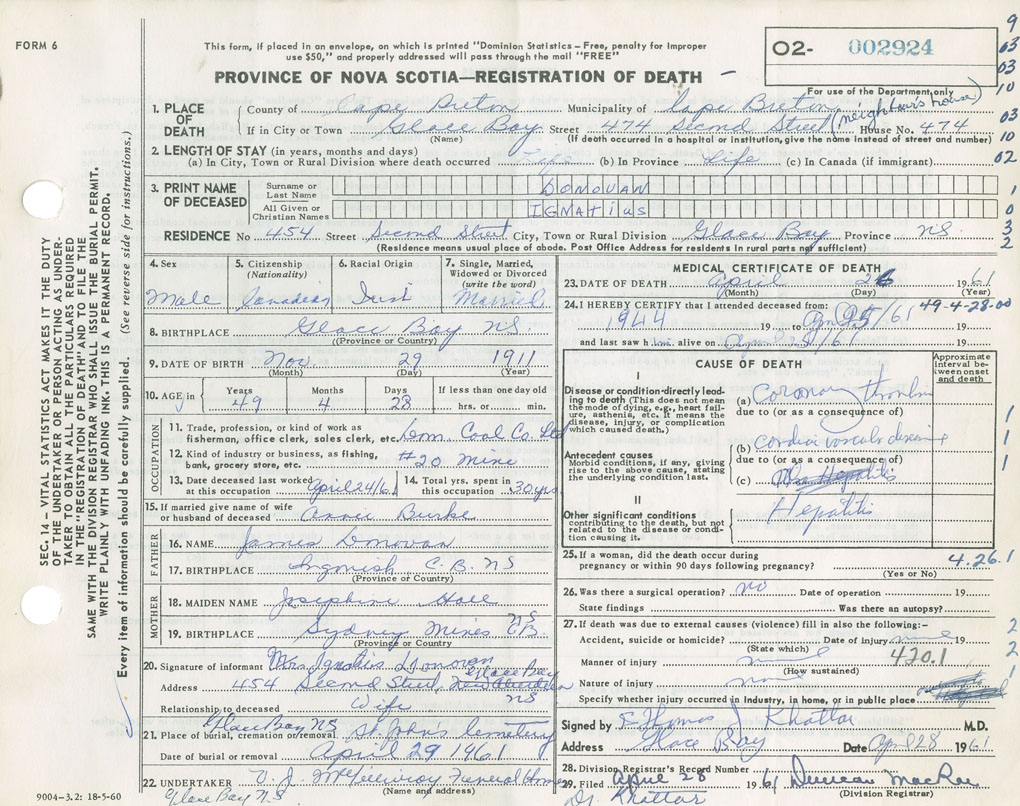 FORM 6
This form, if placed in an envelope, on which is printed "Dominion Statistics - Free, penalty for improper
use $50," and properly addressed will pass through the mail "FREE"
O2- 002924
PROVINCE OF NOVA SCOTIA—REGISTRATION OF DEATH
For use of the Department only
9
03
03
10
03
10
02
1
0
3
2
1. PLACE OF DEATH
County of Cape Breton Municipality of Cape Breton (neighbur's house)
If in City or Town Glace Bay Street 474 Second Street House No. 474
(Name) (If death occurred in a hospital or institution, give the name instead of street and number)
2. LENGTH OF STAY (in years, months and days)
(a) In City, Town or Rural Division where death occurred Life (b) In Province Life (c) In Canada (if immigrant)
3. PRINT NAME OF DECEASED
Surname or Last Name DONOVAN
All Given or Christian Names IGNATIUS
RESIDENCE No 454 Street Second Street City, Town or Rural Division Glace Bay Province NS
(Residence means usual place of abode. Post Office Address for residents in rural parts not sufficient)
4. Sex
Male
5. Citizenship
(Nationality)
Canadian
6. Racial Origin
Irish
7. Single, Married, Widowed or Divorced
(write the word)
Married
8. BIRTHPLACE Glace Bay NS.
(Province or Country)
9. DATE OF BIRTH Nov. 29 1911
(Month) (Day) (Year)
10. AGE in
Years 49
Months 4
Days 28
If less than one day old
hrs. or min.
OCCUPATION
11. Trade, profession, or kind of work as
fisherman, office clerk, sales clerk, etc. Dom. Coal Co. Ltd
12. Kind of industry or business, as fishing,
bank, grocery store, etc. #20 Mine
13. Date deceased last worked
at this occupation April 24/61
14. Total yrs. spent in
this occupation 30 yrs
15. If married give name of wife
or husband of deceased Annie Burke
FATHER
16. NAME James Donovan
17. BIRTHPLACE Ingonish C.B. NS
(Province or Country)
MOTHER
18. MAIDEN NAME Josephine Hall
19. BIRTHPLACE Sydney Mines NS C.B.
(Province or Country)
20. Signature of informant Mrs Ignatius Donovan
Address 454 Second Street, Glace Bay
NS
Relationship to deceased Wife
Glace Bay NS
21. Place of burial, cremation or removal St. John's Cemetery
Date of burial or removal April 29 1961
22. UNDERTAKER V. J. McGillivray Funeral Home
(Name and address)
Glace Bay N.S.
9004-3.2: 18-5-60
MEDICAL CERTIFICATE OF DEATH
23. DATE OF DEATH April 26 1961
(Month) (Day) (Year)
24. I HEREBY CERTIFY that I attended deceased from: 49-4-28-00
1944 19 to 25/61 19
and last saw h im alive on 25/61 19
CAUSE OF DEATH
Approximate interval between onset and death
I
Disease or condition-directly leading to death (This does not mean
the mode of dying, e.g., heart failure, asthenia, etc. It means the
disease, injury, or complication
which caused death.)
(a) Coronary
due to (or as a consequence of)
Antecedent causes
Morbid conditions, if any, giving
rise to the above cause, stating
the underlying condition last.
(b) Cardio vascular disease
due to (or as a consequence of)
(c) Hepatitis
1
1
1
1
II
Other significant conditions
contributing to the death, but not
related to the disease or condition causing it.
Hepatitis
25. If a woman, did the death occur during
pregnancy or within 90 days following pregnancy?
(Yes or No)
4.26.1
26. Was there a surgical operation? no Date of operation 19
State findings Was there an autopsy?
27. If death was due to external causes (violence) fill in also the following:-
Accident, suicide or homicide? Date of injury 19
(State which)
Manner of injury 420.1
(How sustained)
Nature of injury
Specify whether injury occurred in industry, in home, or in public place
2
2
1
Signed by Thomas J Khattar M.D.
Address Glace Bay Date April 28 1961
28. Division Registrar's Record Number
29. Filed April 28 1961 Duncan MacRae
(Division Registrar)
Dr. Khattar
SEC. 14 – VITAL STATISTICS ACT MAKES IT THE DUTY
OF THE UNDERTAKER OR PERSON ACTING AS UNDER-
TAKER TO OBTAIN ALL THE PARTICULARS REQUIRED
IN THE "REGISTRATION OF DEATH" AND TO FILE THE
SAME WITH THE DIVISION REGISTRAR WHO SHALL ISSUE THE BURIAL PERMIT.
WRITE PLAINLY WITH UNFADING INK. THIS IS A PERMANENT RECORD.
Every item of information should be carefully supplied. (See reverse side for instructions.)